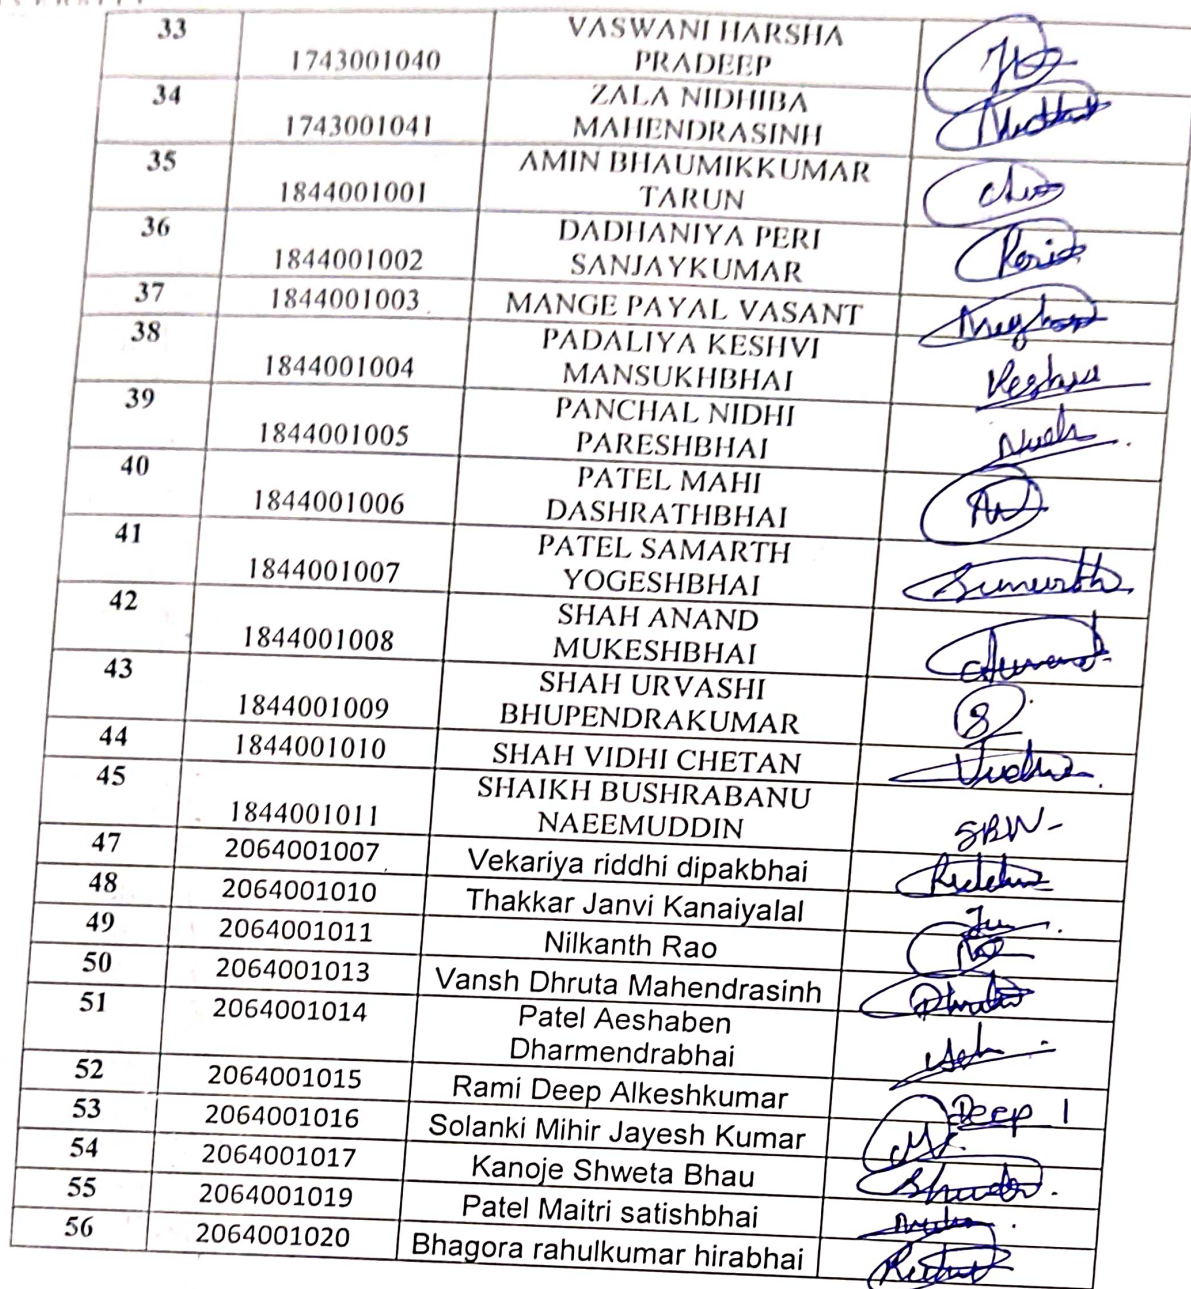 33 1743001040 VASWANI HARSHA
PRADEEP
34 1743001041 ZALA NIDHIBA
MAHENDRASINH
35 1844001001 AMIN BHAUMIKKUMAR
TARUN
36 1844001002 DADHANIYA PERI
SANJAYKUMAR
37 1844001003 MANGE PAYAL VASANT
38 1844001004 PADALIYA KESHVI
MANSUKHBHAI
39 1844001005 PANCHAL NIDHI
PARESHBHAI
40 1844001006 PATEL MAHI
DASHRATHBHAI
41 1844001007 PATEL SAMARTH
YOGESHBHAI
42 1844001008 SHAH ANAND
MUKESHBHAI
43 1844001009 SHAH URVASHI
BHUPENDRAKUMAR
44 1844001010 SHAH VIDHI CHETAN
45 1844001011 SHAIKH BUSHRABANU
NAEEMUDDIN
47 2064001007 Vekariya riddhi dipakbhai
48 2064001010 Thakkar Janvi Kanaiyalal
49 2064001011 Nilkanth Rao
50 2064001013 Vansh Dhruta Mahendrasinh
51 2064001014 Patel Aeshaben
Dharmendrabhai
52 2064001015 Rami Deep Alkeshkumar Deep
53 2064001016 Solanki Mihir Jayesh Kumar
54 2064001017 Kanoje Shweta Bhau
55 2064001019 Patel Maitri satishbhai
56 2064001020 Bhagora rahulkumar hirabhai